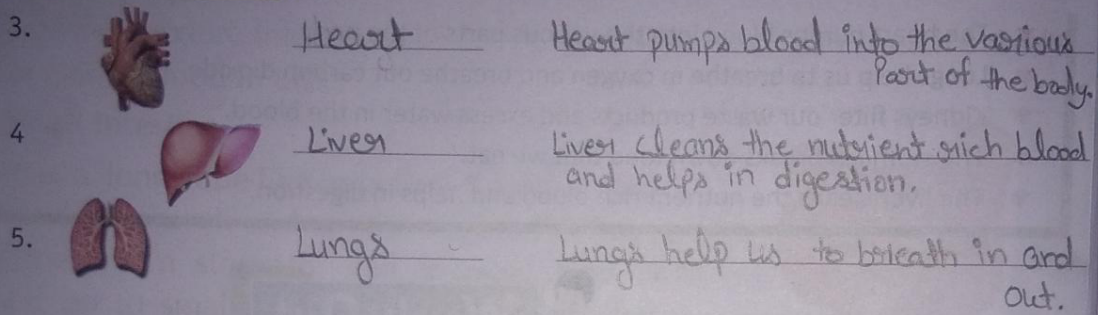 3. Heart Heart pumps blood into the various
Part of the body.
4 Liver Liver cleans the nutrient rich blood
and helps in digestion.
5. Lungs Lungs help us to breath in and
out.